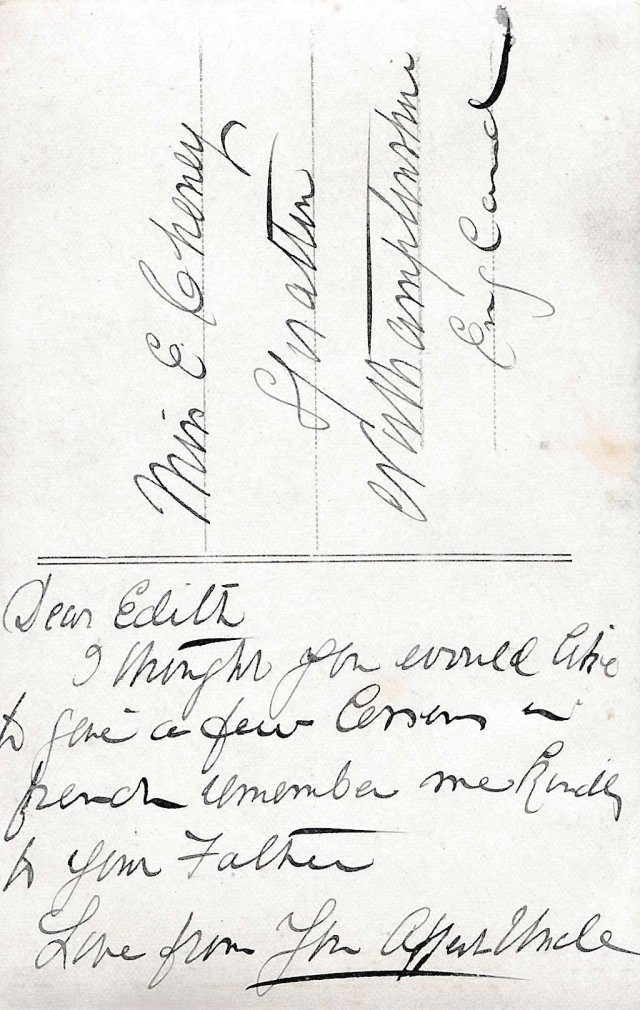 Miss E. Cheney
Spratton
Northamptonshire
England
Dear Edith
I thought you would like
to give a few lessons in
french remember me kindly
to your Father
Love from Your Affect Uncle